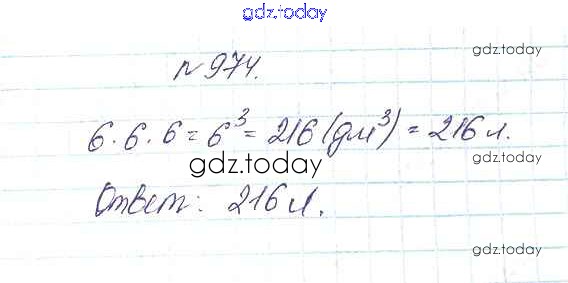 gdz.today
gdz.today
№ 974.
6 · 6 · 6 = 6³ = 216 (дм³) = 216 л.
gdz.today
gdz.today
Ответ: 216 л.
gdz.today